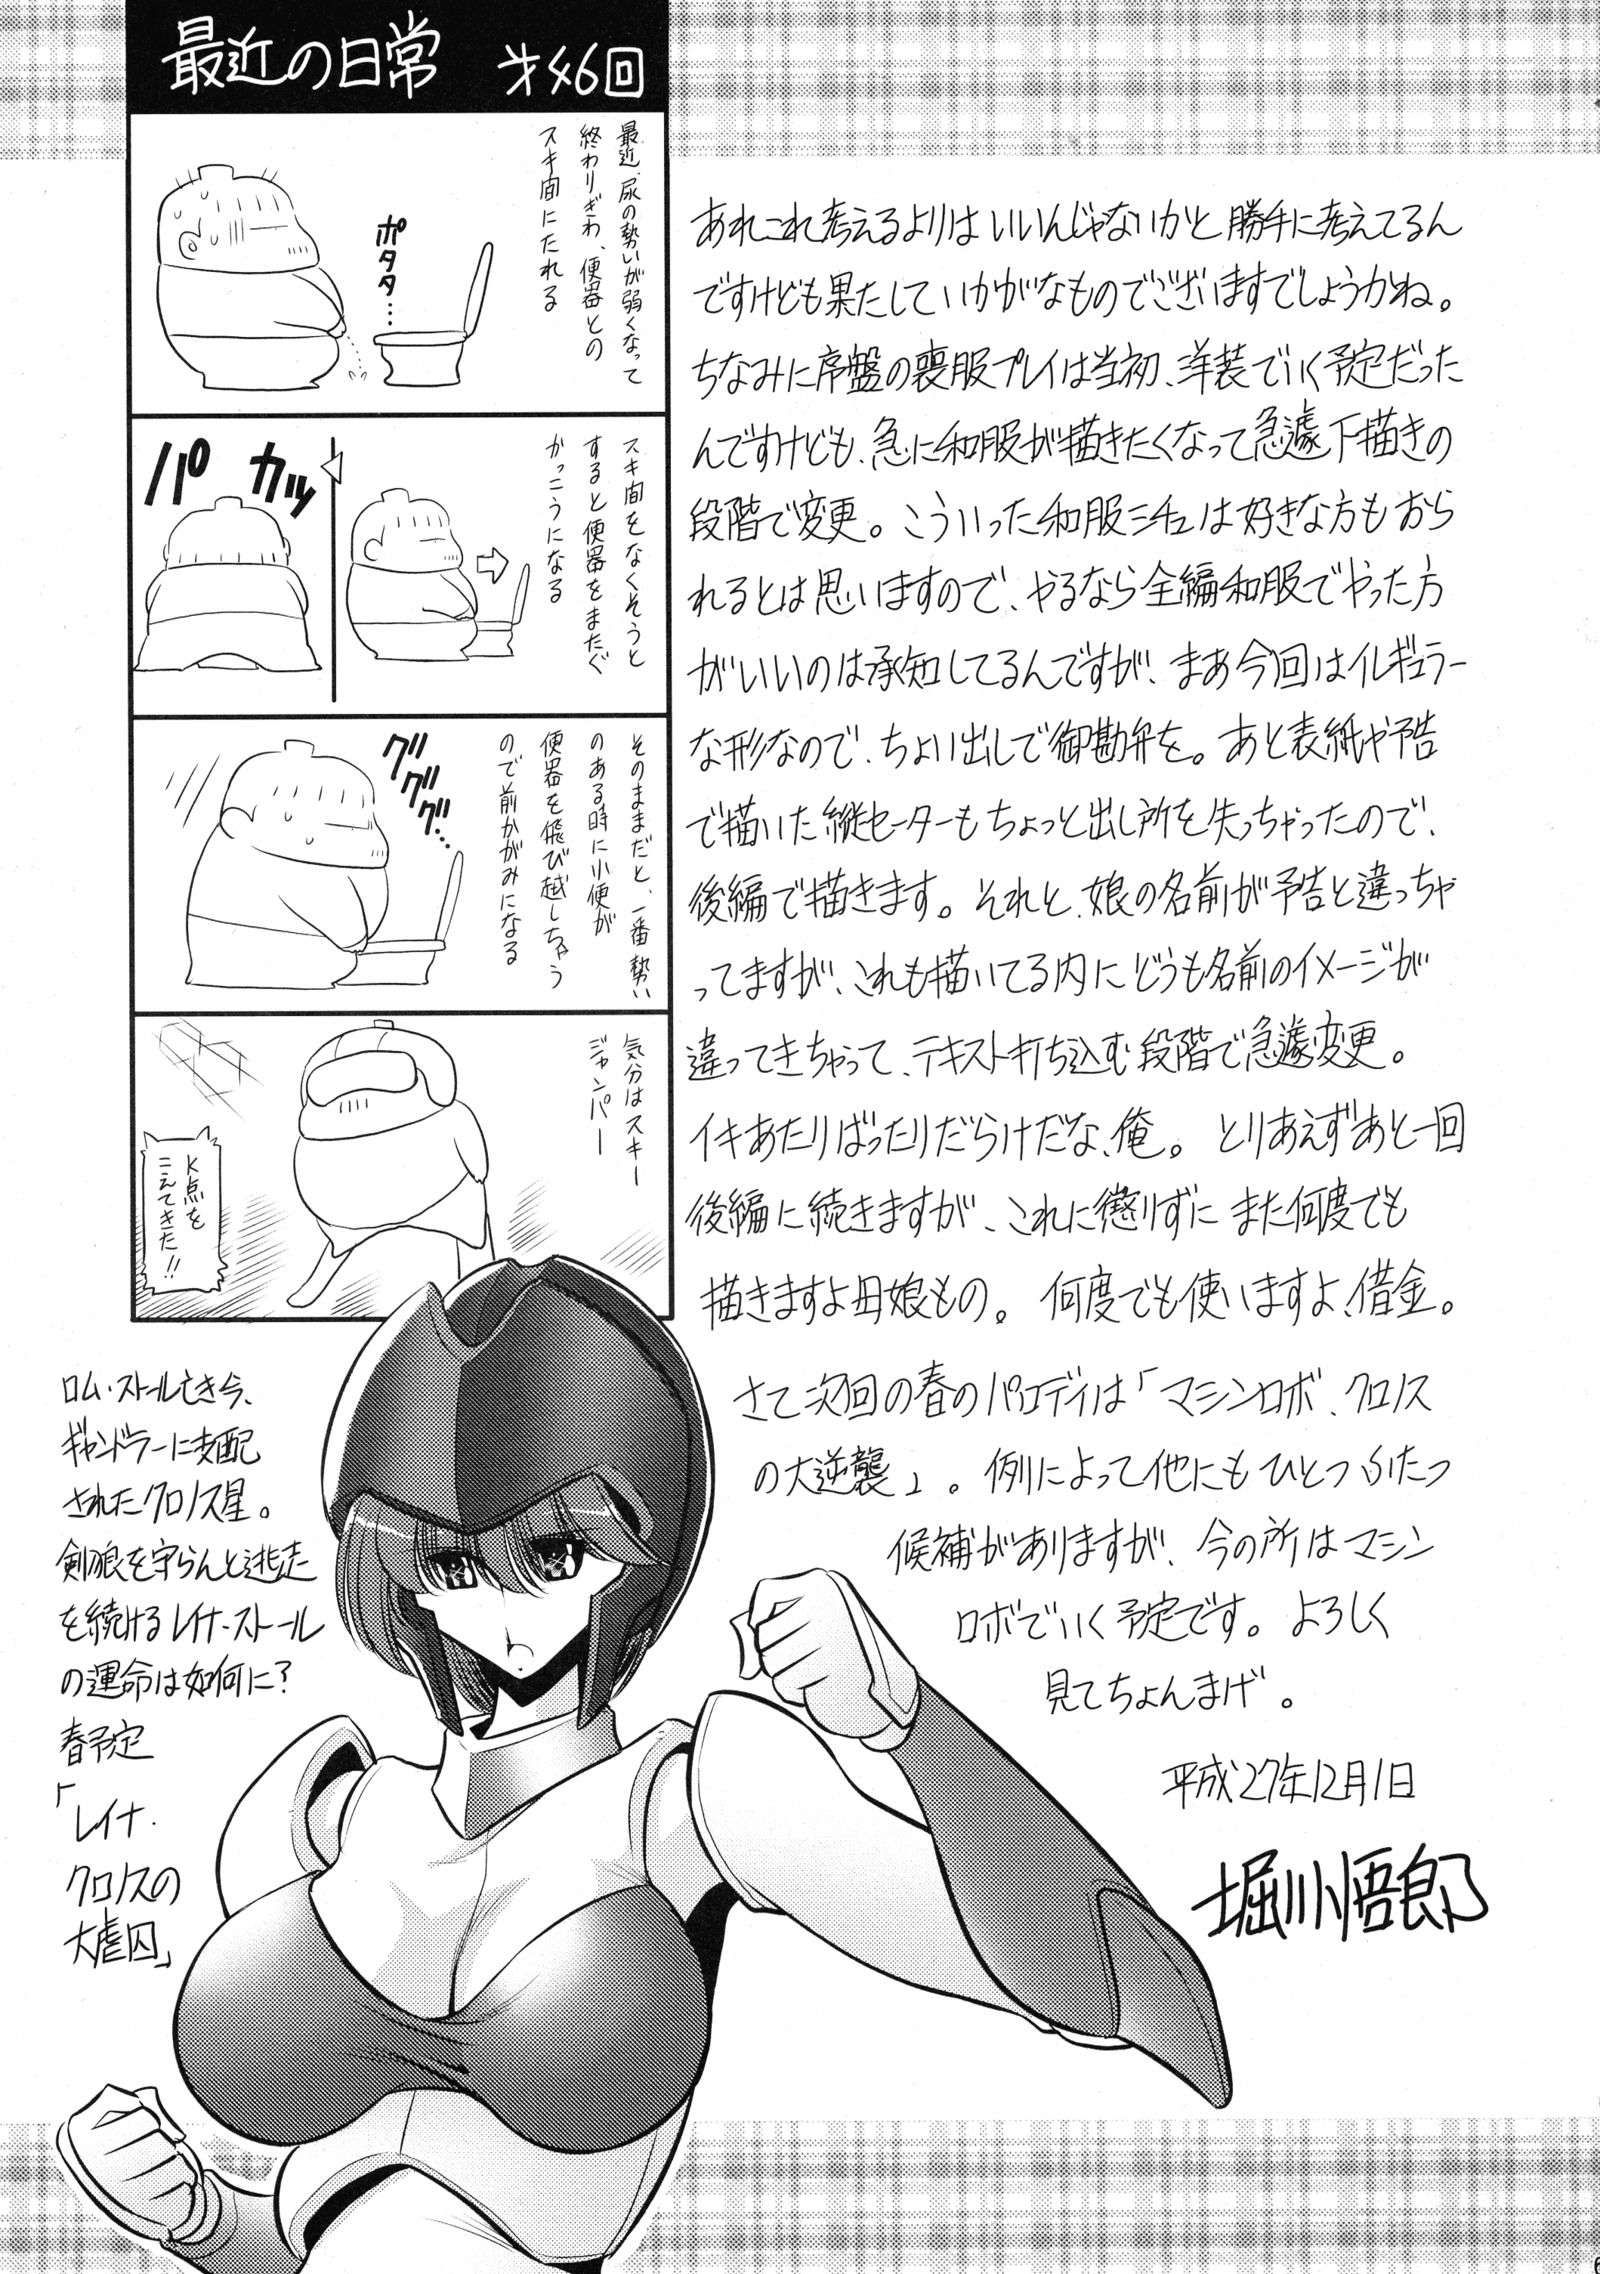 最近の日常 第46回
最近、尿の勢いが弱くなって
終わりぎわ、便器との
スキ間にたれる
ポタタ…
スキ間をなくそうと
すると便器をまたぐ
かっこうになる
カッ
パ
そのままだと、一番勢い
のある時に小便が
便器を飛び越しちゃう
ので前かがみになる
グググググ…
気分はスキー
ジャンパー
K点を
こえてきた!!
あれこれ考えるよりはいいんじゃないかと勝手に考えてるん
ですけども果たしていかがなものでございますでしょうかね。
ちなみに序盤の喪服プレイは当初、洋装でいく予定だった
んですけども、急に和服が描きたくなって急遽下描きの
段階で変更。こういった和服シチュは好きな方もおら
れるとは思いますので、やるなら全編和服でやった方
がいいのは承知してるんですが、まあ今回はイレギュラー
な形なので、ちょい出しで御勘弁を。あと表紙や予告
で描いた縦セーターもちょっと出し所を失っちゃったので、
後編で描きます。それと、娘の名前が予告と違っちゃ
ってますが、これも描いてる内にどうも名前のイメージが
違ってきちゃって、テキスト打ち込む段階で急遽変更。
イキあたりばったりだらけだな、俺。とりあえずあと一回
後編に続きますが、これに懲りずにまた何度でも
描きますよ母娘もの。何度でも使いますよ、借金。
さて次回の春のパロディは「マシンロボ、クロノス
の大逆襲」。例によって他にもひとつふたつ
候補がありますが、今の所はマシン
ロボでいく予定です。よろしく
見てちょんまげ。
平成27年12月1日
堀川悟郎
ロム・ストール亡き今、
ギャンドラーに支配
されたクロノス星。
剣狼を守らんと逃走
を続けるレイナ・ストール
の運命は如何に？
春予定
「レイナ・
クロノスの
大虐囚」
6